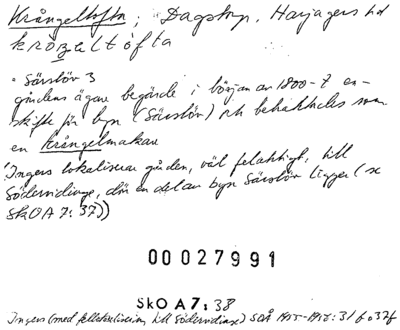 Krångeltofta; Dagstorp, Harjagers hd
krɔŋeltofta
° Särslöv 3
gårdens ägare begärde i början av 1800-t en-
skifte för byn (Särslöv) och betraktades som
en krångelmakare
Ingers lokaliserar gården, väl felaktigt, till
Södervidinge, där en del av byn Särslöv ligger (se
SkO A 7: 37))
00027991
SkO A 7: 38
Ingers (med fellokalisering till Södervidinge) SOÅ 1975-1976: 31 f o 37f